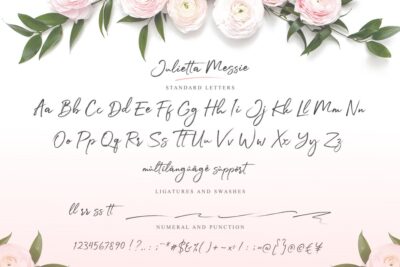 Julietta Messie
STANDARD LETTERS
Aa Bb Cc Dd Ee Ff Gg Hh Ii Jj Kk Ll Mm Nn
Oo Pp Qq Rr Ss Tt Uu Vv Ww Xx Yy Zz
mùltilángüágè süppòrt
LIGATURES AND SWASHES
ll rr ss tt
NUMERAL AND PUNCTION
1234567890 !?